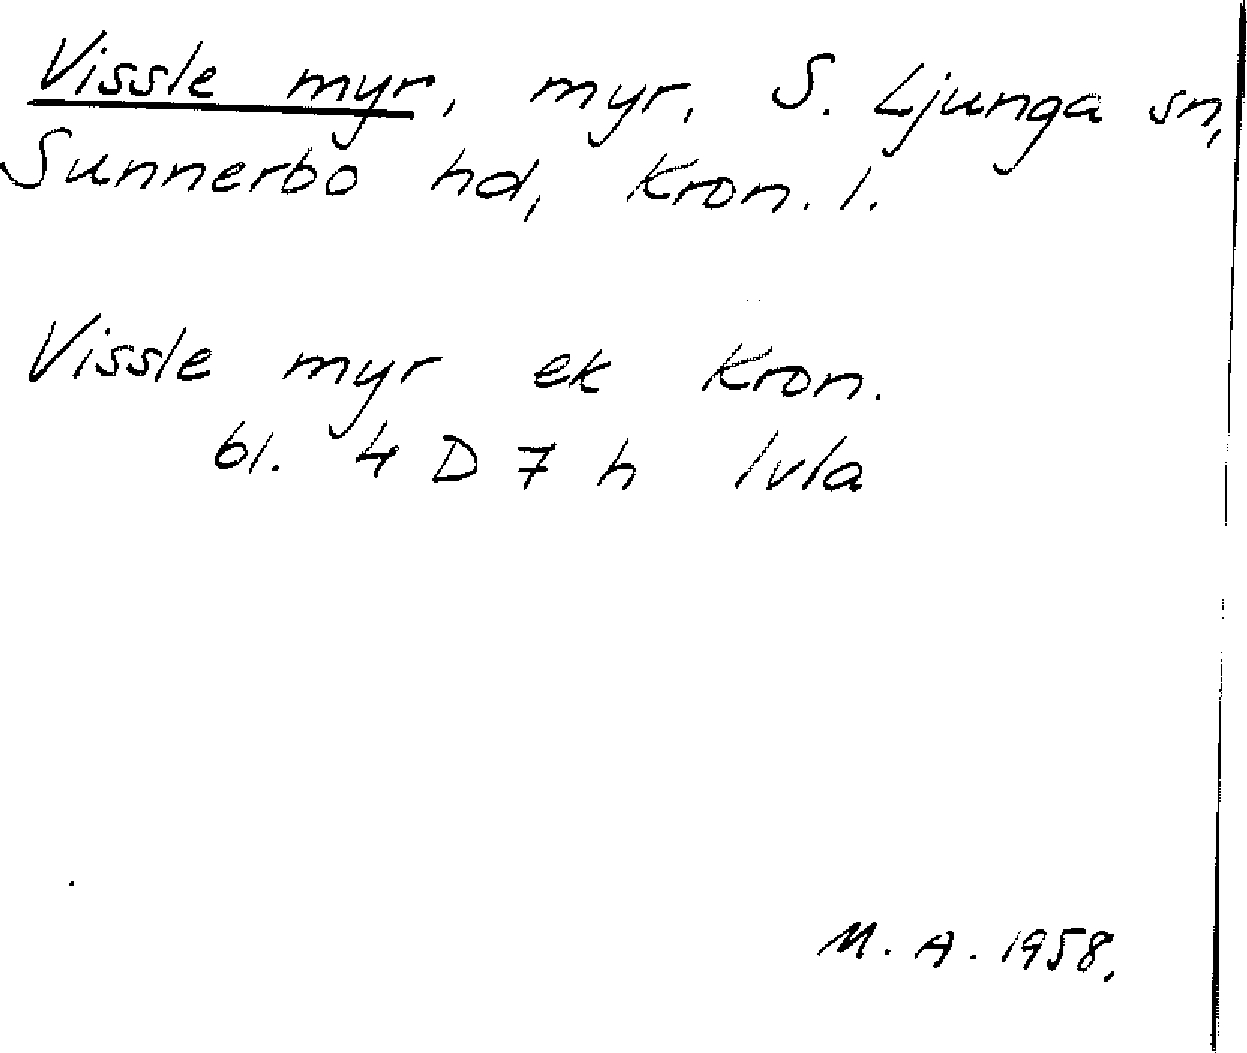 Vissle myr, myr, S. Ljunga sn,
Sunnerbo hd, Kron. l.
Vissle myr ek Kron.
bl. 4 D 7 h Ivla
M. A. 1958.